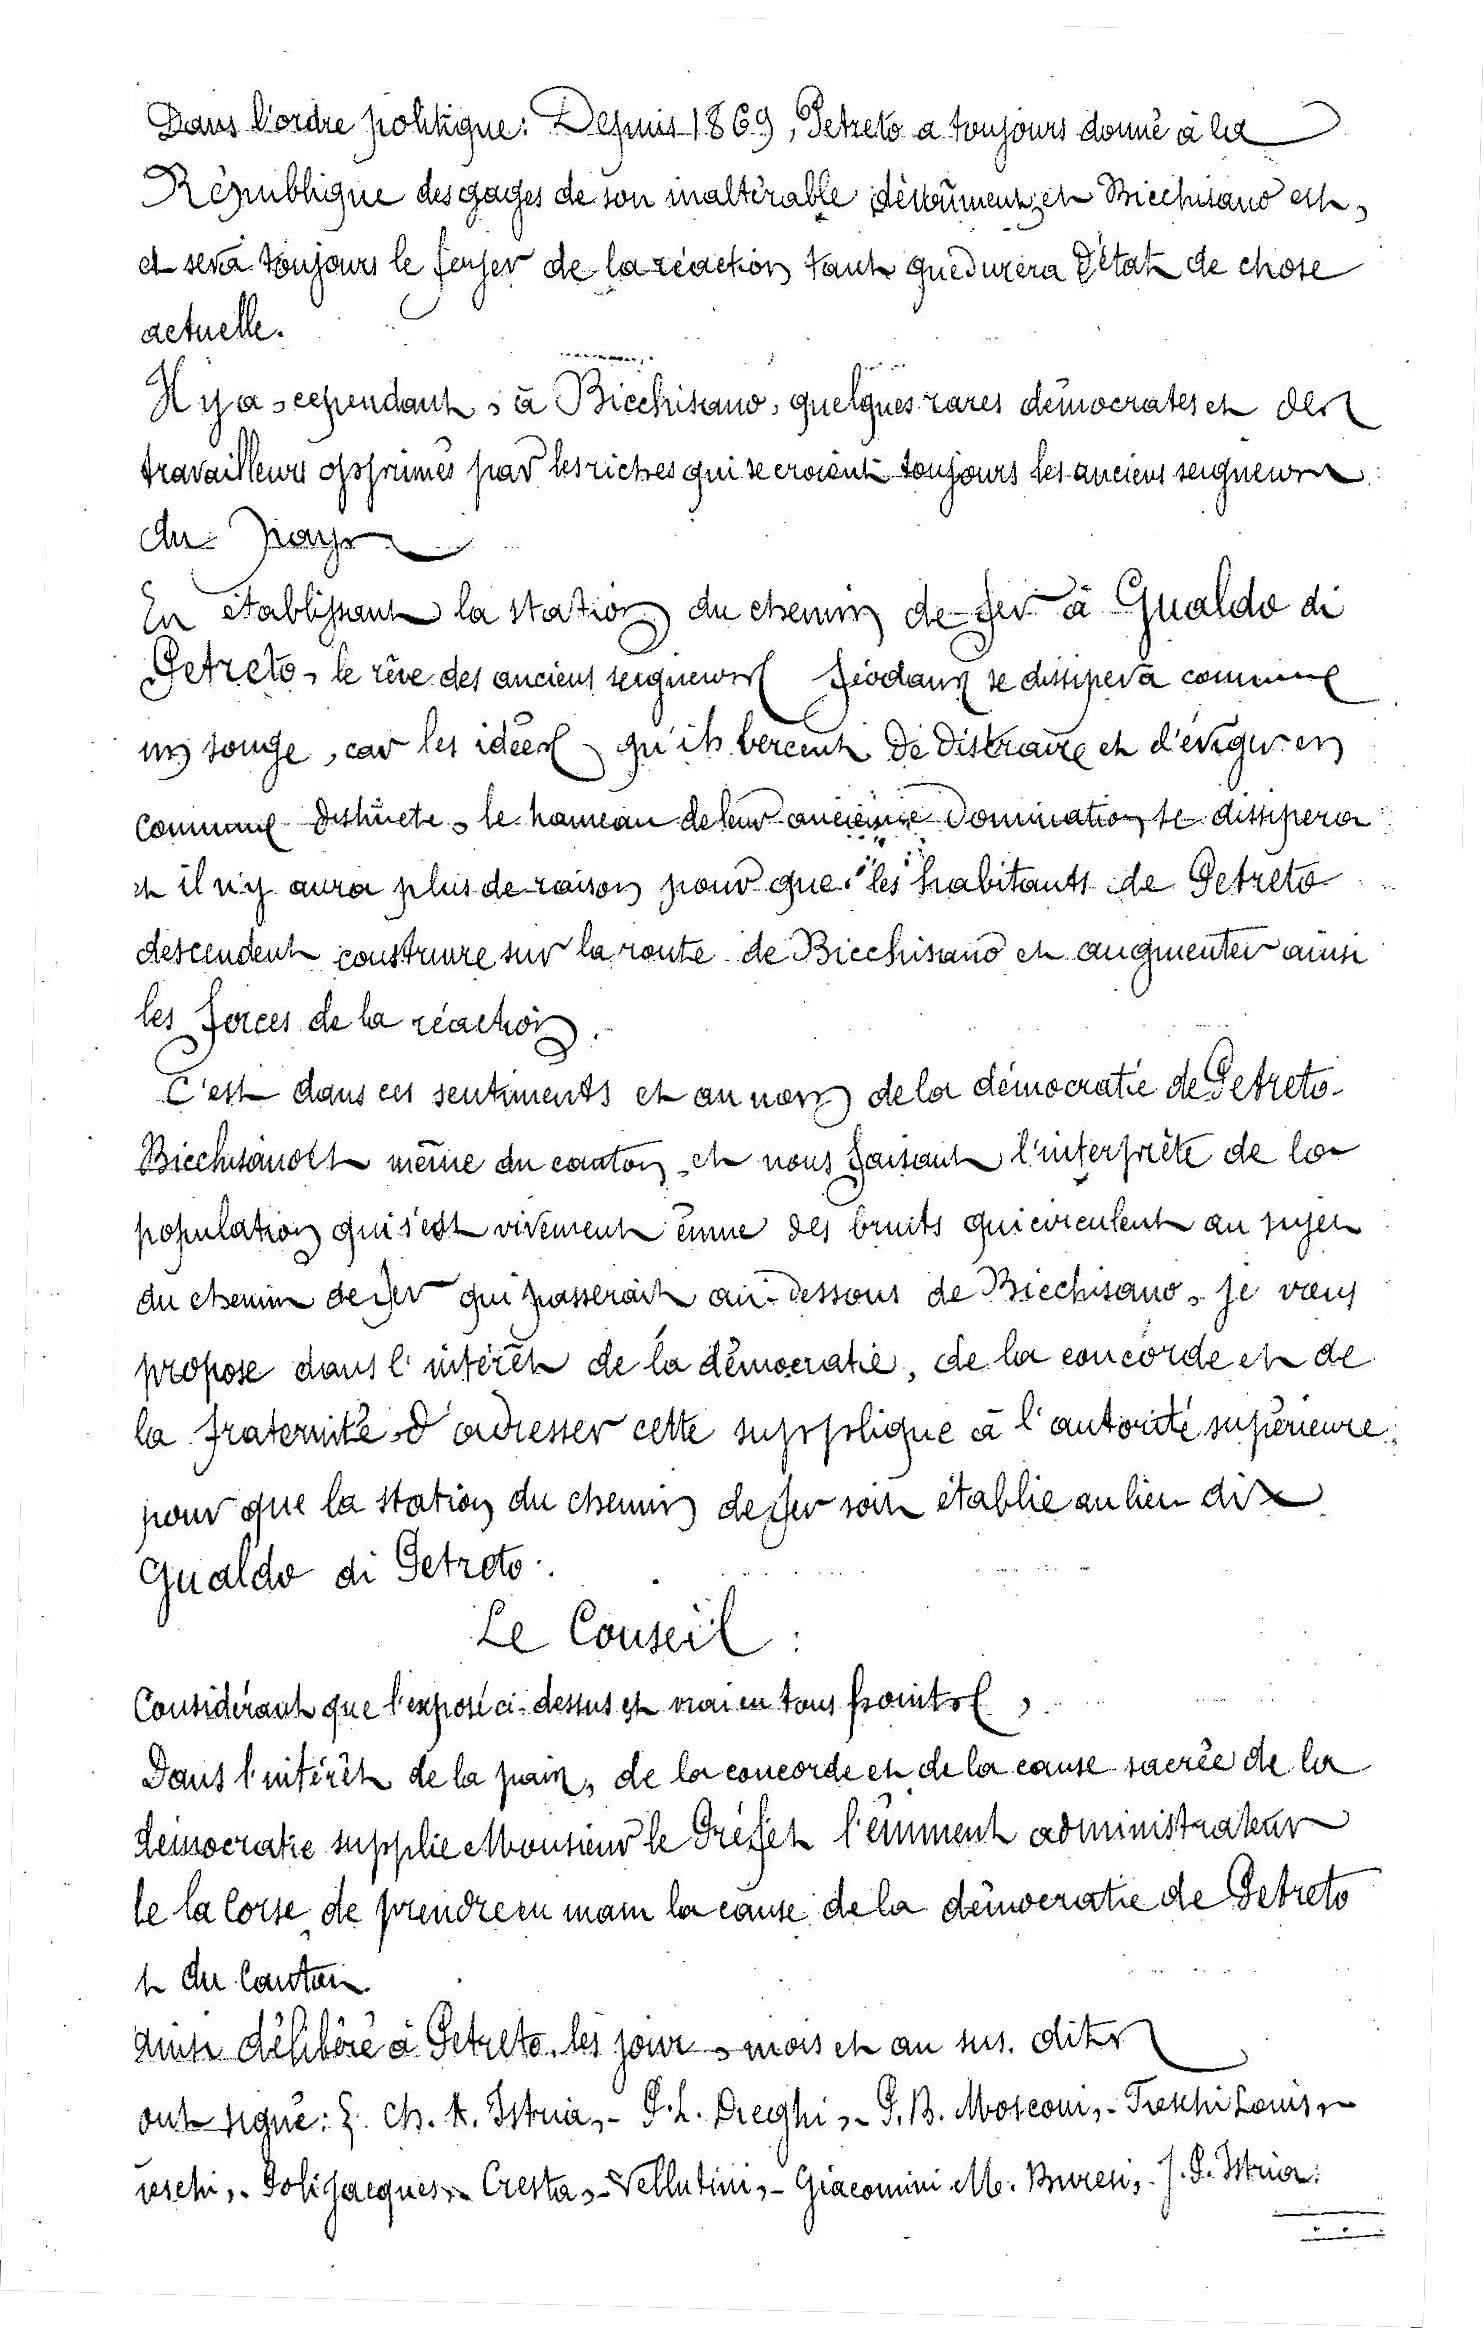 Dans l'ordre politique: Depuis 1869, Petreto a toujours donné à la
République des gages de son inaltérable dévoûment, et Bicchisano est,
et sera toujours le foyer de la réaction tant que durera l'état de chose
actuelle.
Il y a, cependant, à Bicchisano, quelques rares démocrates et des
travailleurs opprimés par les riches qui se croient toujours les anciens seigneurs
du pays
En établissant la station du chemin de fer à Gualdo di
Petreto, le rêve des anciens seigneurs féodaux se dissipera comme
un songe, car les idées qu'ils bercent de distraire et d'ériger en
commune distincte, le hameau de leur ancienne domination se dissipera
et il n'y aura plus de raison pour que les habitants de Petreto
descendent construire sur la route de Bicchisano et augmenter ainsi
les forces de la réaction.
C'est dans ces sentiments et au nom de la démocratie de Petreto-
Bicchisano et même du canton, et nous faisant l'interprète de la
population qui s'est vivement émue des bruits qui circulent au sujet
du chemin de fer qui passerait au-dessous de Bicchisano, je vous
propose dans l'intérêt de la démocratie, de la concorde et de
la fraternité, d'adresser cette suppplique à l'autorité supérieure
pour que la station du chemin de fer soit établie au lieu dit
Gualdo di Petreto.
Le Conseil:
Considérant que l'exposé ci-dessus est vrai en tous points,
Dans l'intérêt de la paix, de la concorde et de la cause sacrée de la
démocratie supplie Monsieur le Préfet l'éminent administrateur
de la Corse de prendre en main la cause de la démocratie de Petreto
et du Canton.
Ainsi délibéré à Petreto, les jour, mois et an sus-dits
ont signé: Ch. A. Istria,- P. L. Dreghi,- P. B. Mosconi,- Louis,-
Poli Jacques,- Cresta,- Vellutini,- Giacomini M. Buresi,- J. P. Istria.